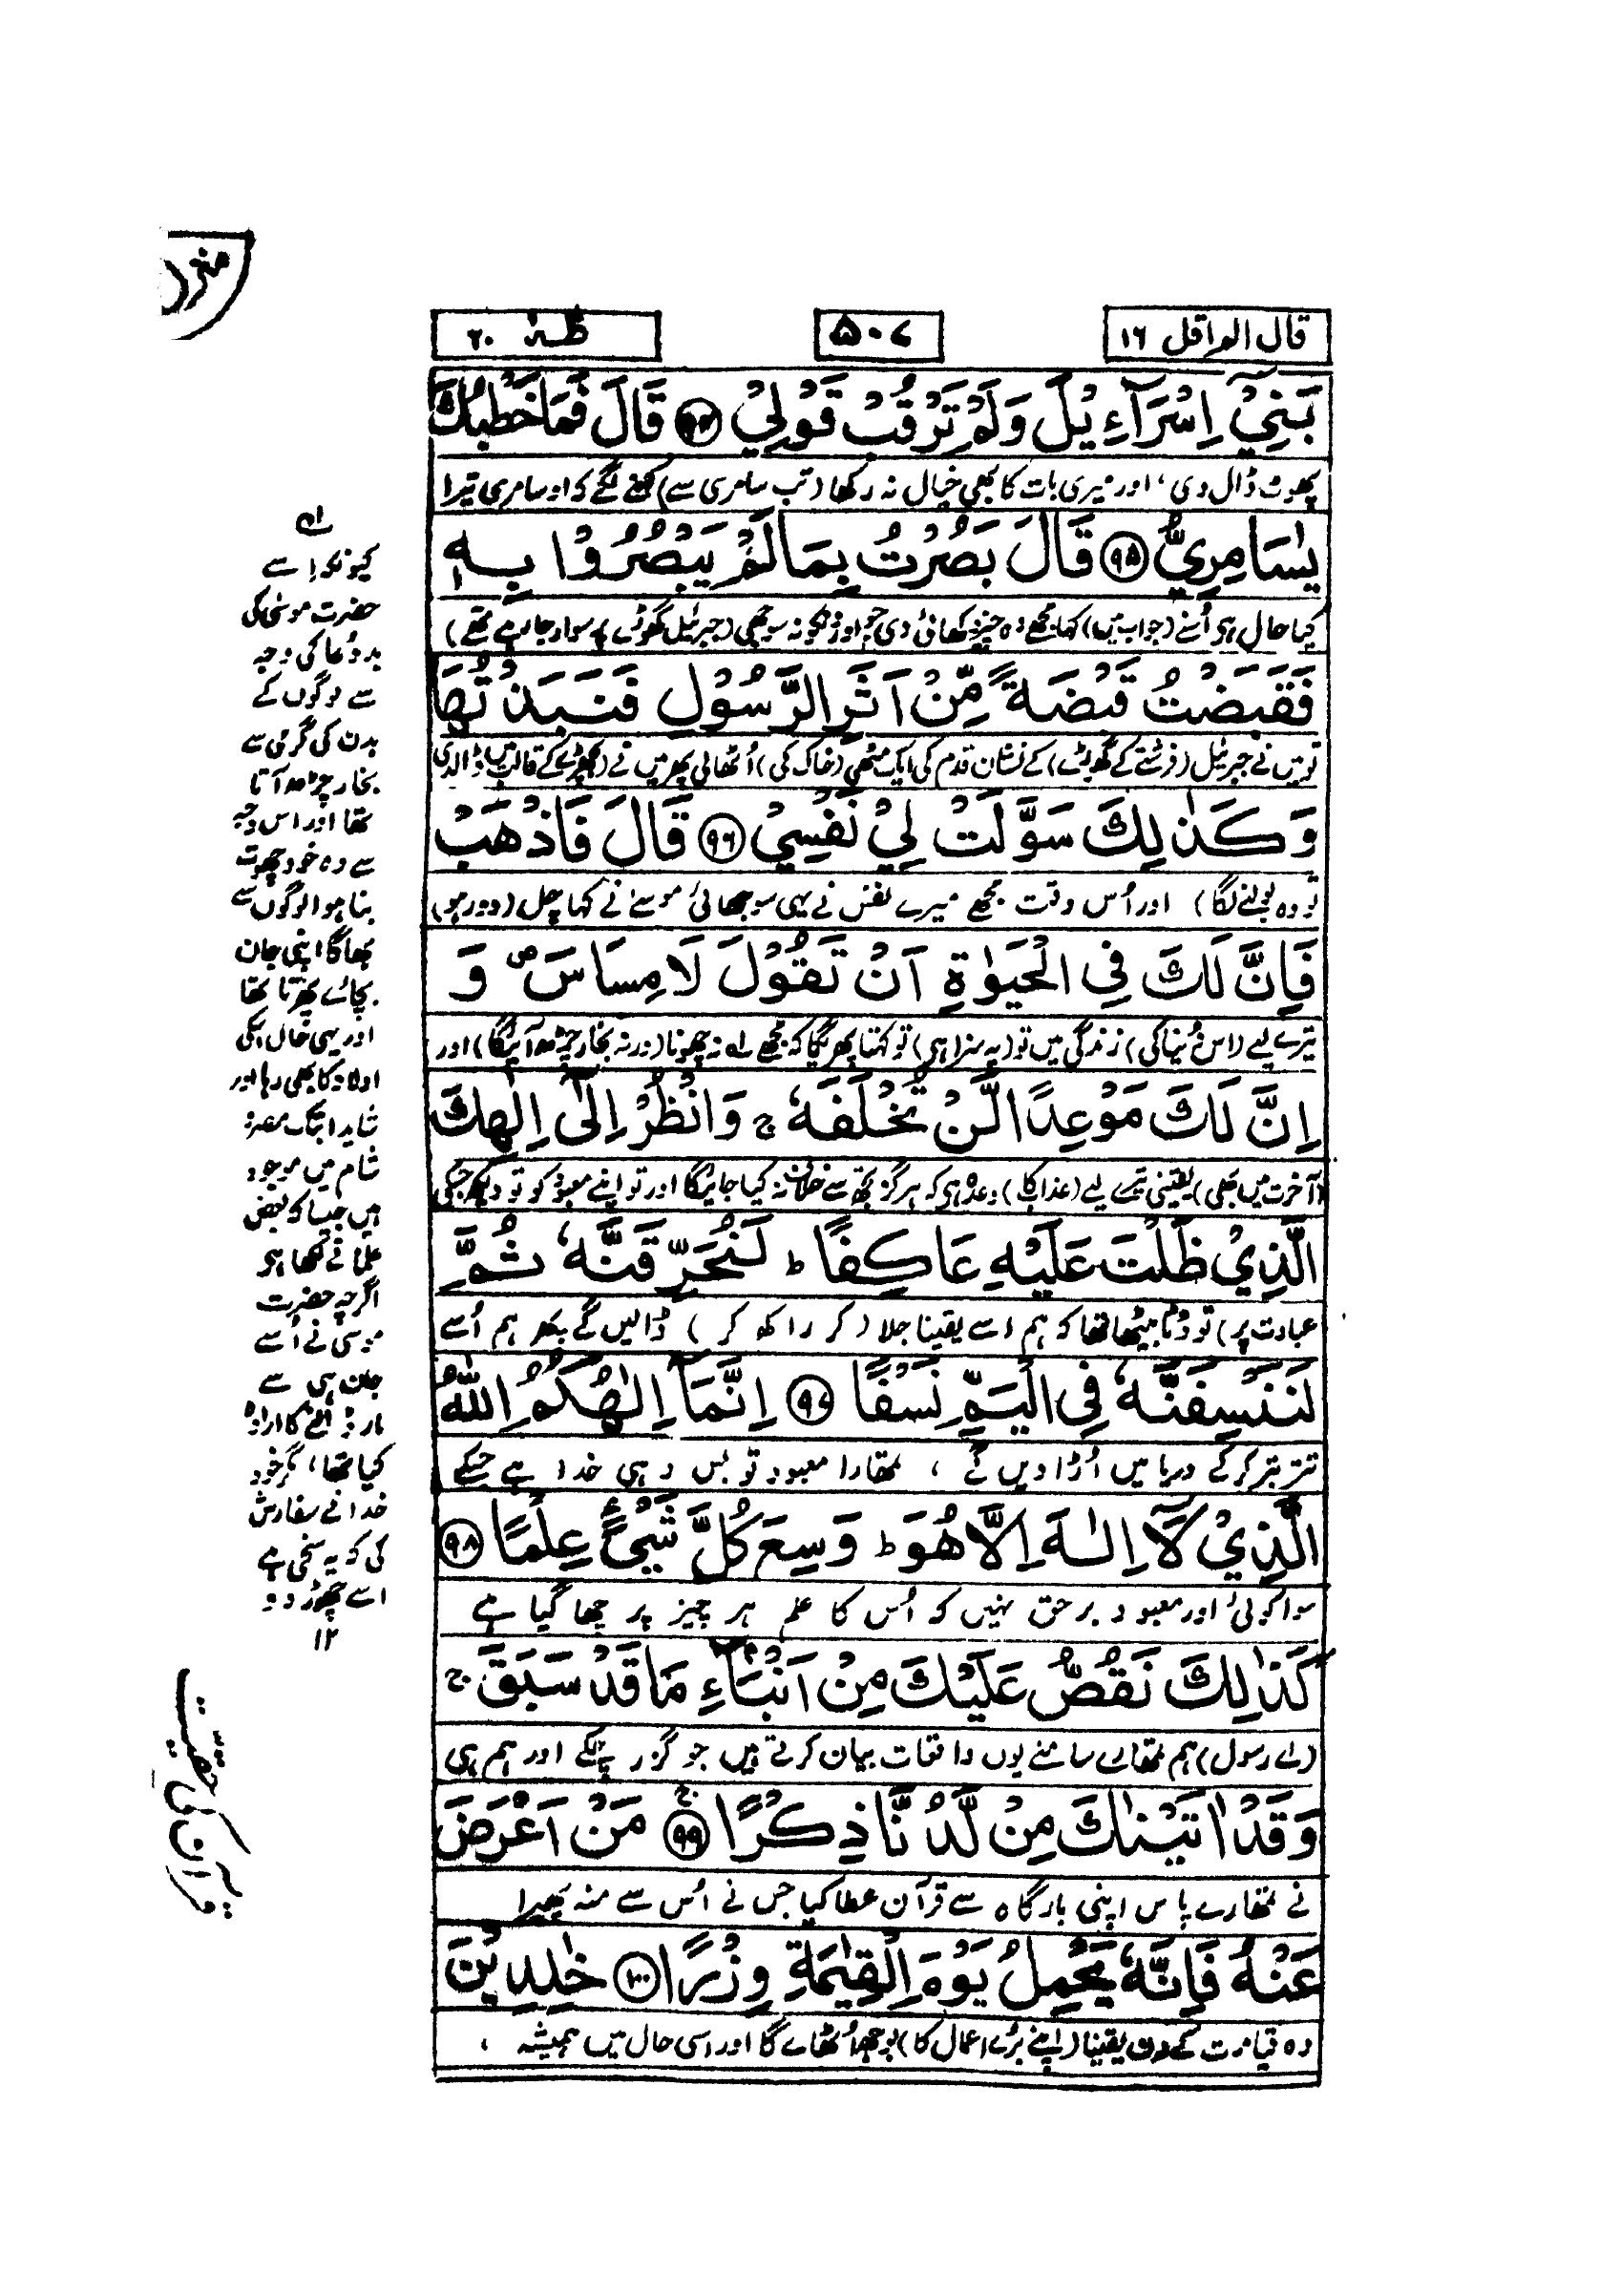 قال الم اقل ١٦
٥٠٧
طٰهٰ ٢٠
بَنِيْٓ اِسْرَآءِيْلَ وَلَمْ تَرْقُبْ قَوْلِيْ ﴿٩٤﴾ قَالَ فَمَا خَطْبُكَ
پھوٹ ڈال دی، اور میری بات کا بھی خیال نہ رکھا (تب سامری سے) کہنے لگے کہ او سامری تیرا
يٰسَامِرِيُّ ﴿٩٥﴾ قَالَ بَصُرْتُ بِمَا لَمْ يَبْصُرُوْا بِهٖ
کیا حال ہو اُسنے (جواب میں) کہا مجھے وہ چیز دکھائی دی جو اوروں کو نہ سوجھی (جبرئیل گھوڑے پر سوار جا رہے تھے)
فَقَبَضْتُ قَبْضَةً مِّنْ اَثَرِ الرَّسُوْلِ فَنَبَذْتُهَا
تو میں نے جبرئیل (فرشتے کے گھوڑے) کے نشان قدم کی ایک مٹھی (خاک کی) اُٹھالی پھر میں نے (بچھڑے کے قالب میں) ڈالدی
وَكَذٰلِكَ سَوَّلَتْ لِيْ نَفْسِيْ ﴿٩٦﴾ قَالَ فَاذْهَبْ
تو وہ بولنے لگا) اور اُس وقت مجھے میرے نفس نے یہی سوجھائی موسےٰ نے کہا چل (دور ہو)
فَاِنَّ لَكَ فِي الْحَيٰوةِ اَنْ تَقُوْلَ لَا مِسَاسَ ۖ وَ
تیرے لیے (اس دُنیا کی) زندگی میں تو (یہ سزا ہی) تو کہتا پھریگا کہ مجھے لہ نہ چھونا (ورنہ بخار چڑھ آئیگا) اور
اِنَّ لَكَ مَوْعِدًا لَّنْ تُخْلَفَهٗ ۚ وَانْظُرْ اِلٰٓى اِلٰهِكَ
(آخرت میں بھی) یقینی تیرے لیے (عذاب کا) وعدہ ہی کہ ہرگز تجھ سے خلاف نہ کیا جائیگا اور تو اپنے معبود کو تو دیکھ جسکی
الَّذِيْ ظَلْتَ عَلَيْهِ عَاكِفًا ؕ لَنُحَرِّقَنَّهٗ ثُمَّ
عبادت پر) تو ڈٹا بیٹھا تھا کہ ہم اسے یقینا جلا (کر راکھ کر) ڈالیں گے پھر ہم اُسے
لَنَنْسِفَنَّهٗ فِي الْيَمِّ نَسْفًا ﴿٩٧﴾ اِنَّمَآ اِلٰهُكُمُ اللّٰهُ
تتر بتر کرکے دریا میں اُڑا دیں گے ، تمھارا معبود تو بس وہی خدا ہے جسکے
الَّذِيْ لَآ اِلٰهَ اِلَّا هُوَ ؕ وَسِعَ كُلَّ شَيْءٍ عِلْمًا ﴿٩٨﴾
سوا کوئی اور معبود برحق نہیں کہ اُس کا علم ہر چیز پر چھا گیا ہے
كَذٰلِكَ نَقُصُّ عَلَيْكَ مِنْ اَنْبَآءِ مَا قَدْ سَبَقَ ۚ
(اے رسول) ہم تمھارے سامنے یوں واقعات بیان کرتے ہیں جو گزر چکے اور ہم ہی
وَقَدْ اٰتَيْنٰكَ مِنْ لَّدُنَّا ذِكْرًا ﴿٩٩﴾ مَنْ اَعْرَضَ
نے تمھارے پاس اپنی بارگاہ سے قرآن عطا کیا جس نے اُس سے منہ پھیرا
عَنْهُ فَاِنَّهٗ يَحْمِلُ يَوْمَ الْقِيٰمَةِ وِزْرًا ﴿١٠٠﴾ خٰلِدِيْنَ
وہ قیامت کے دن یقینا (اپنے بُرے اعمال کا) بوجھ اُٹھائے گا اور اسی حال میں ہمیشہ ،
لہ
کیونکہ اِسے
حضرت موسیٰ کی
بددُعا کی وجہ
سے لوگوں کے
بدن کی گرمی سے
بخار چڑھ آتا
تھا اور اس وجہ
سے وہ خود چھوت
بنا ہوا لوگوں سے
بھاگا اپنی جان
بچائے پھرتا تھا
اور یہی حال اسکی
اولاد کا بھی رہا اور
شاید ابتک مصر و
شام میں موجود
ہیں جیسا کہ بعض
علما نے لکھا ہو
اگرچہ حضرت
موسی نے اُسے
جان ہی سے
مار ڈالنے کا ارادہ
کیا تھا، مگر خود
خدا نے سفارش
کی کہ یہ سخی ہے
اسے چھوڑ دو
١٢
منزل